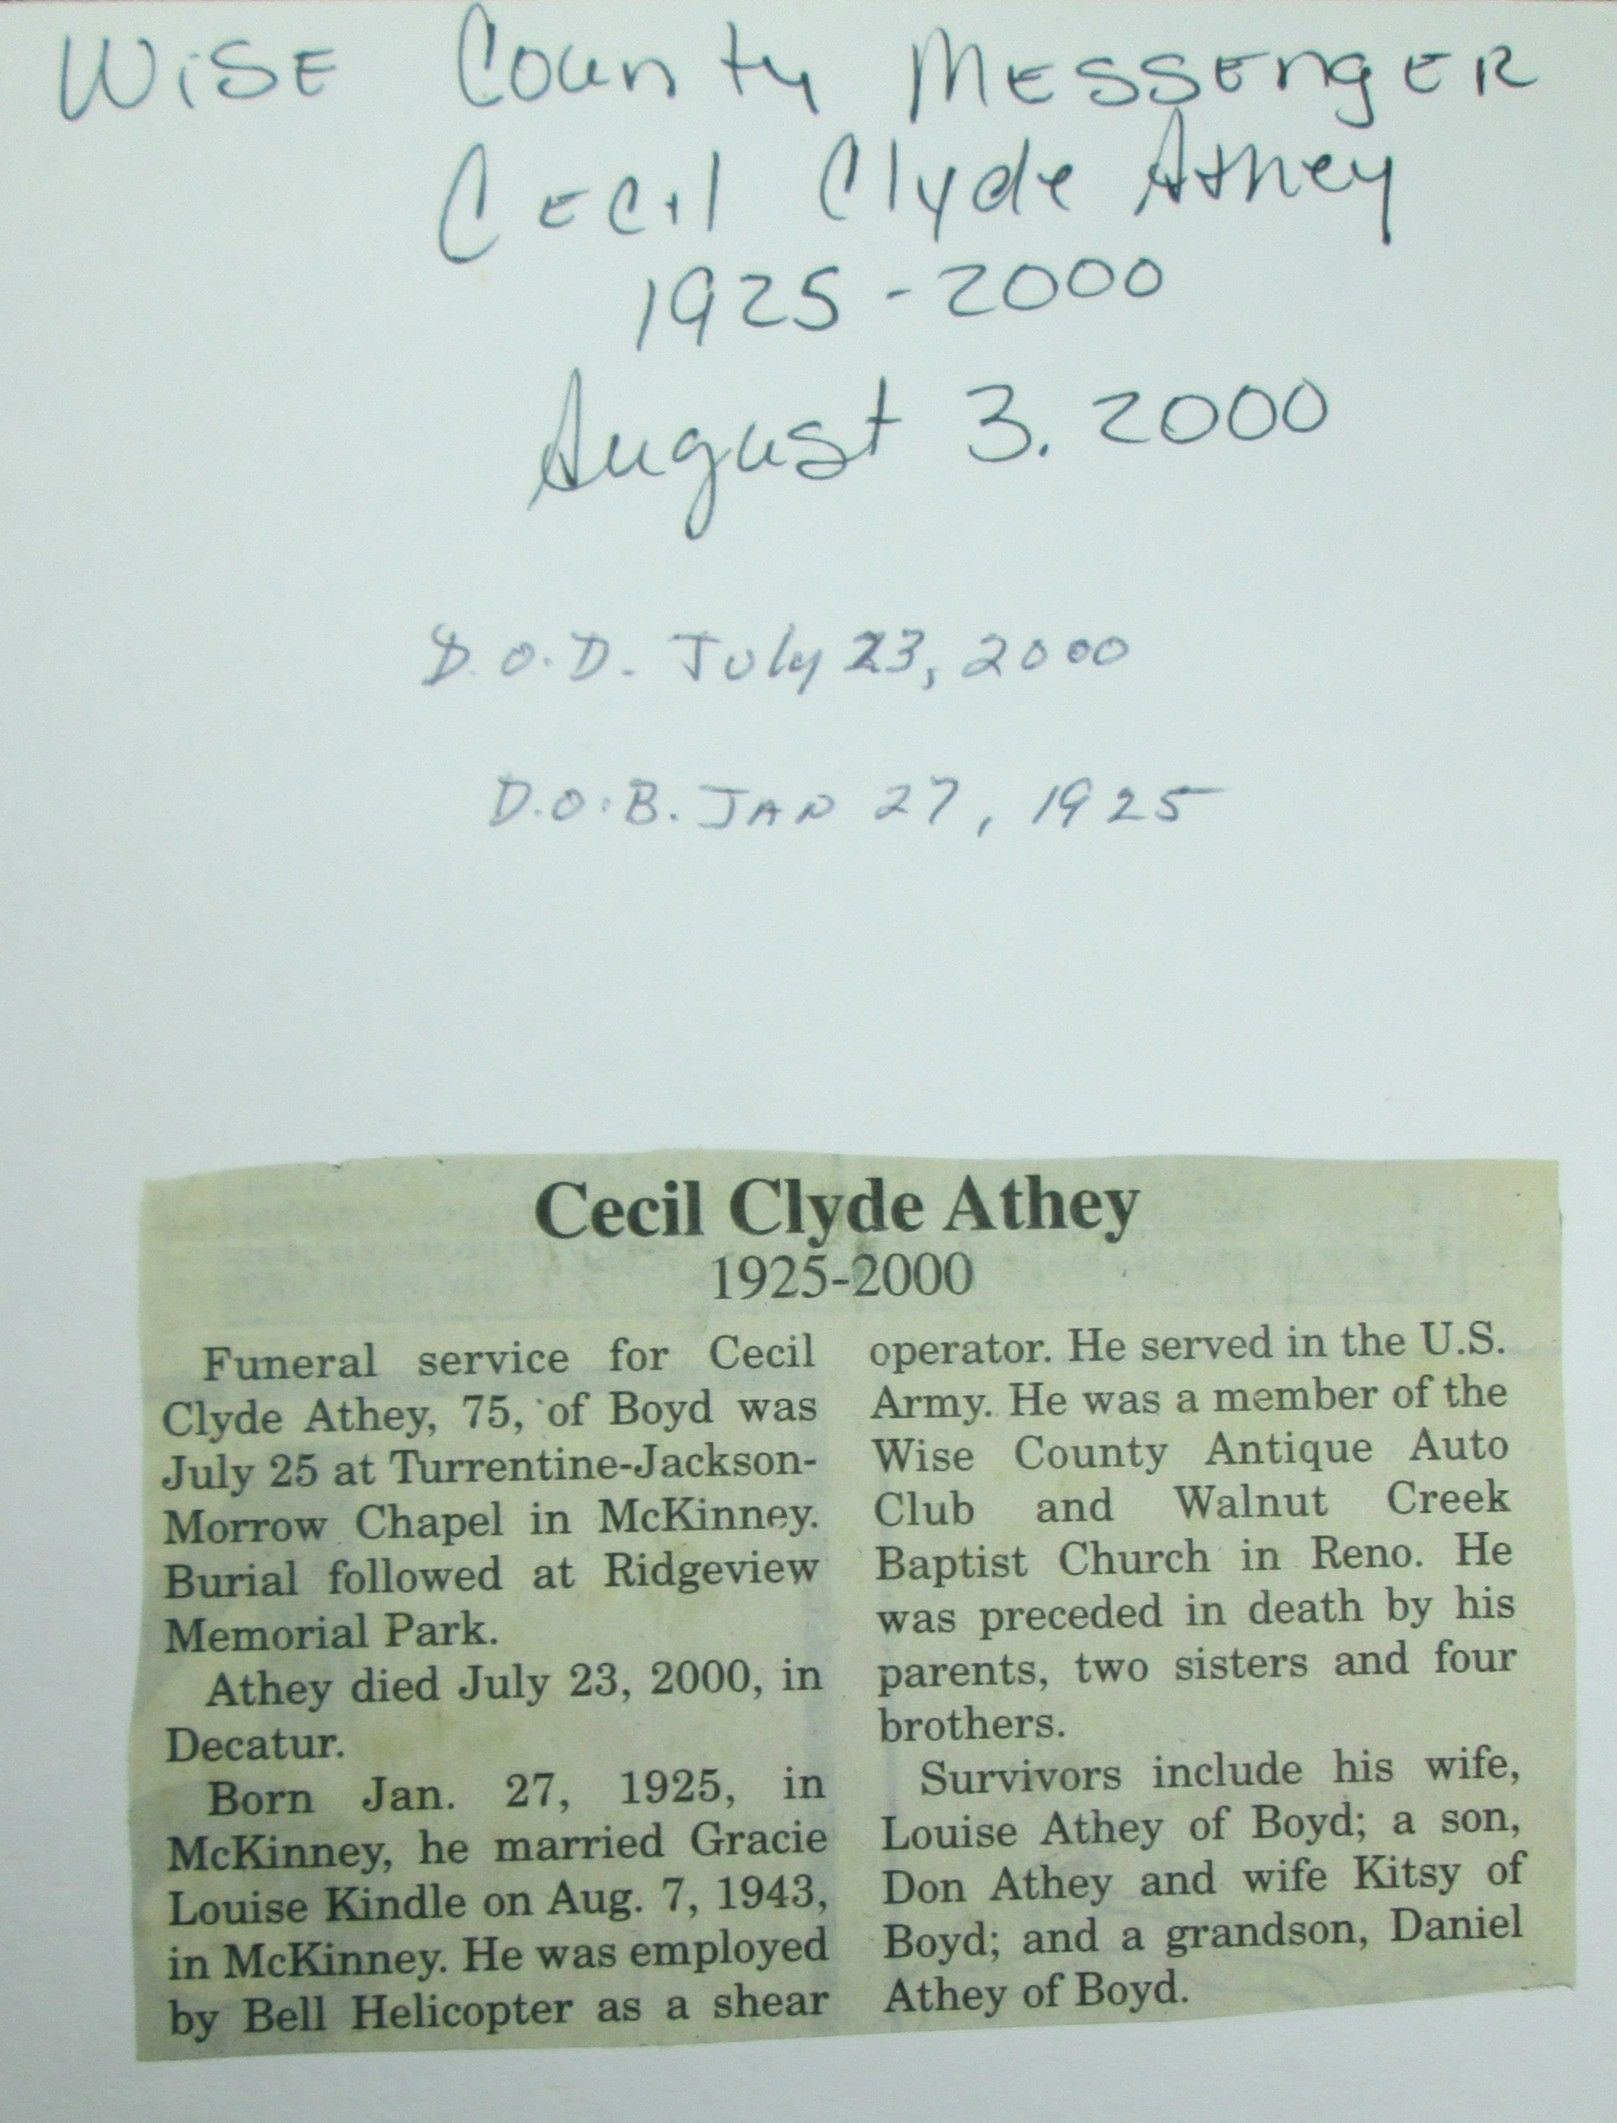 WiSE County MESSENGER
CECil Clyde Athey
1925-2000
August 3. 2000
D.O.D. July 23, 2000
D.O.B. JAN 27, 1925
Cecil Clyde Athey
1925-2000
Funeral service for Cecil
Clyde Athey, 75, of Boyd was
July 25 at Turrentine-Jackson-
Morrow Chapel in McKinney.
Burial followed at Ridgeview
Memorial Park.
Athey died July 23, 2000, in
Decatur.
Born Jan. 27, 1925, in
McKinney, he married Gracie
Louise Kindle on Aug. 7, 1943,
in McKinney. He was employed
by Bell Helicopter as a shear
operator. He served in the U.S.
Army. He was a member of the
Wise County Antique Auto
Club and Walnut Creek
Baptist Church in Reno. He
was preceded in death by his
parents, two sisters and four
brothers.
Survivors include his wife,
Louise Athey of Boyd; a son,
Don Athey and wife Kitsy of
Boyd; and a grandson, Daniel
Athey of Boyd.